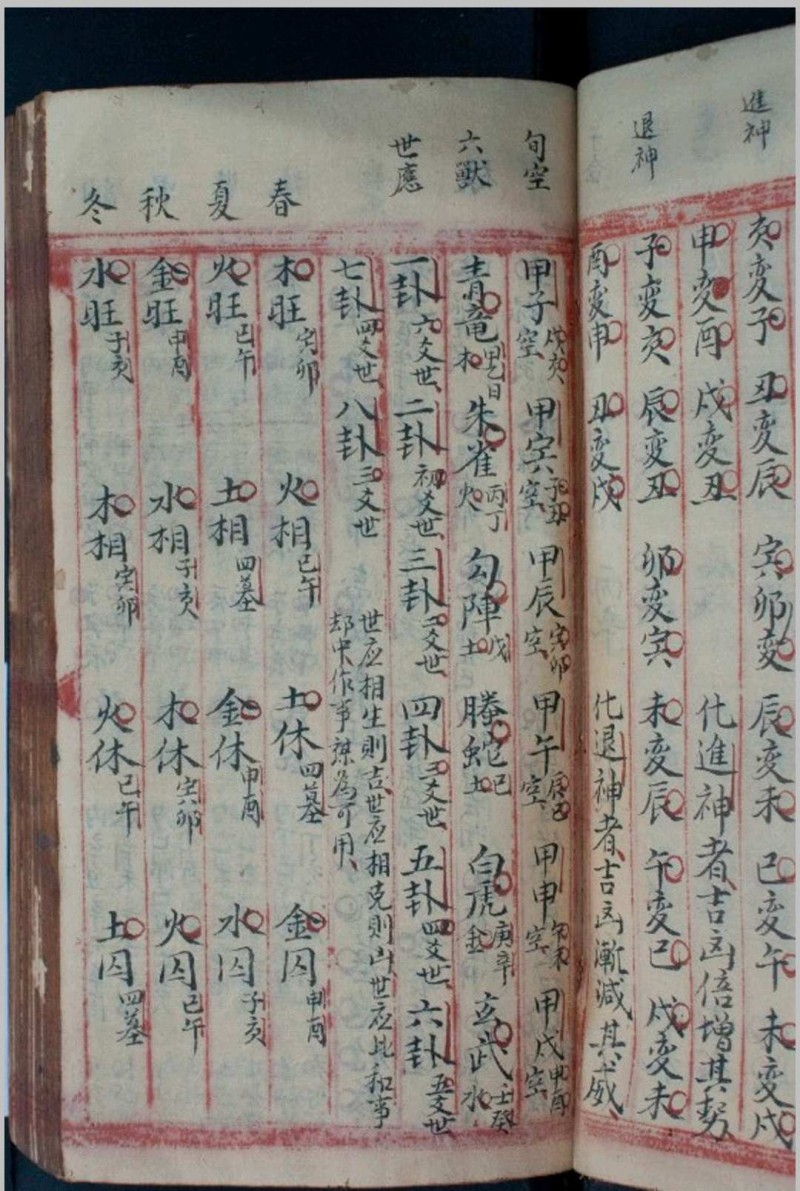 進神
亥变子 丑变辰 寅卯变 辰变未 巳变午 未变戌
申变酉 戌变丑 化進神者吉凶倍增其勢
退神
子变亥 辰变丑 卯变寅 未变辰 午变巳 戌变未
酉变申 丑变戌 化退神者吉凶漸減其威
旬空
甲子空戌亥 甲寅空子丑 甲辰空寅卯 甲午空辰巳 甲申空午未 甲戌空申酉
六獸
青竜木甲乙日 朱雀火丙丁 勾陣土戊 螣蛇土己 白虎金庚辛 玄武水壬癸
世應
一卦六爻世 二卦初爻世 三卦二爻世 四卦三爻世 五卦四爻世 六卦五爻世
七卦四爻世 八卦三爻世 世应相生則吉世应相克則凶世应比和事
却中作事謀為可用
春
木旺寅卯 火相巳午 土休四墓 金囚申酉
夏
火旺巳午 土相四墓 金休申酉 水囚子亥
秋
金旺申酉 水相子亥 木休寅卯 火囚巳午
冬
水旺子亥 木相寅卯 火休巳午 土囚四墓